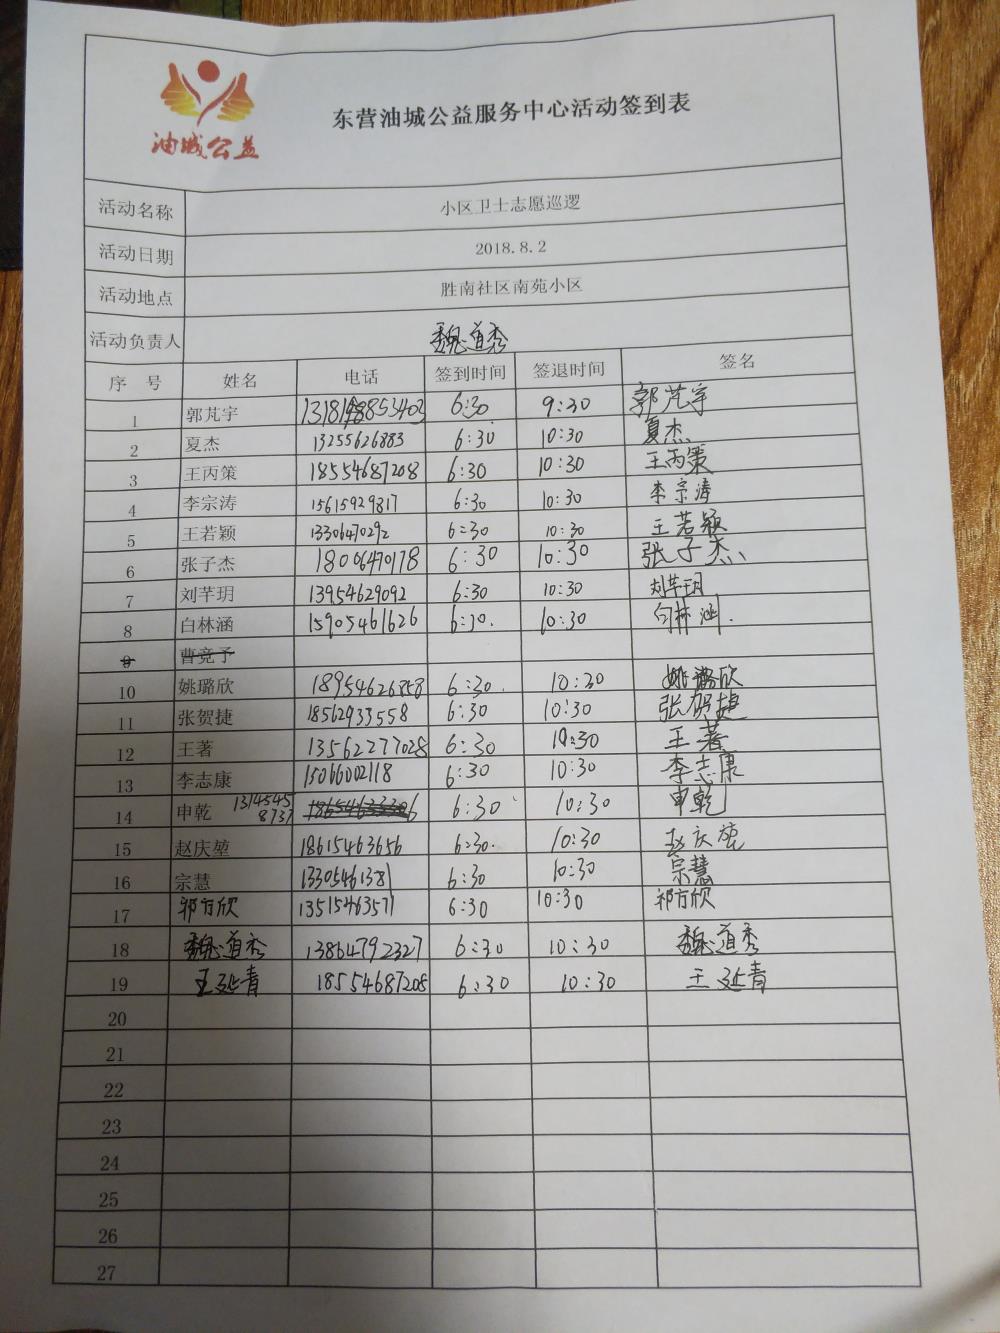 油城公益
东营油城公益服务中心活动签到表
活动名称 小区卫士志愿巡逻
活动日期 2018.8.2
活动地点 胜南社区南苑小区
活动负责人 魏道秀
序号 姓名 电话 签到时间 签退时间 签名
1 郭芃宇 6:30 9:30 郭芃宇
2 夏杰 13255626883 6:30 10:30 夏杰
3 王丙策 18554687208 6:30 10:30 王丙策
4 李宗涛 15615929817 6:30 10:30 李宗涛
5 王若颖 13306470292 6:30 10:30 王若颖
6 张子杰 18006470178 6:30 10:30 张子杰
7 刘芊玥 13954629092 6:30 10:30 刘芊玥
8 白林涵 15905461626 6:30. 10:30 白林涵.
9 曹竞予
10 姚璐欣 6:30. 10:30 姚璐欣
11 张贺捷 18562933558 6:30 10:30 张贺捷
12 王著 13562277028 6:30 10:30 王著
13 李志康 15066002118 6:30 10:30 李志康
14 申乾 13145458737 6:30 10:30 申乾
15 赵庆堃 18615463656 6:30. 10:30 赵庆堃
16 宗慧 13305461381 6:30 10:30 宗慧
17 祁方欣 13515463571 6:30 10:30 祁方欣
18 魏道秀 13864792327 6:30 10:30 魏道秀
19 王延青 18554687208 6:30 10:30 王延青
20
21
22
23
24
25
26
27